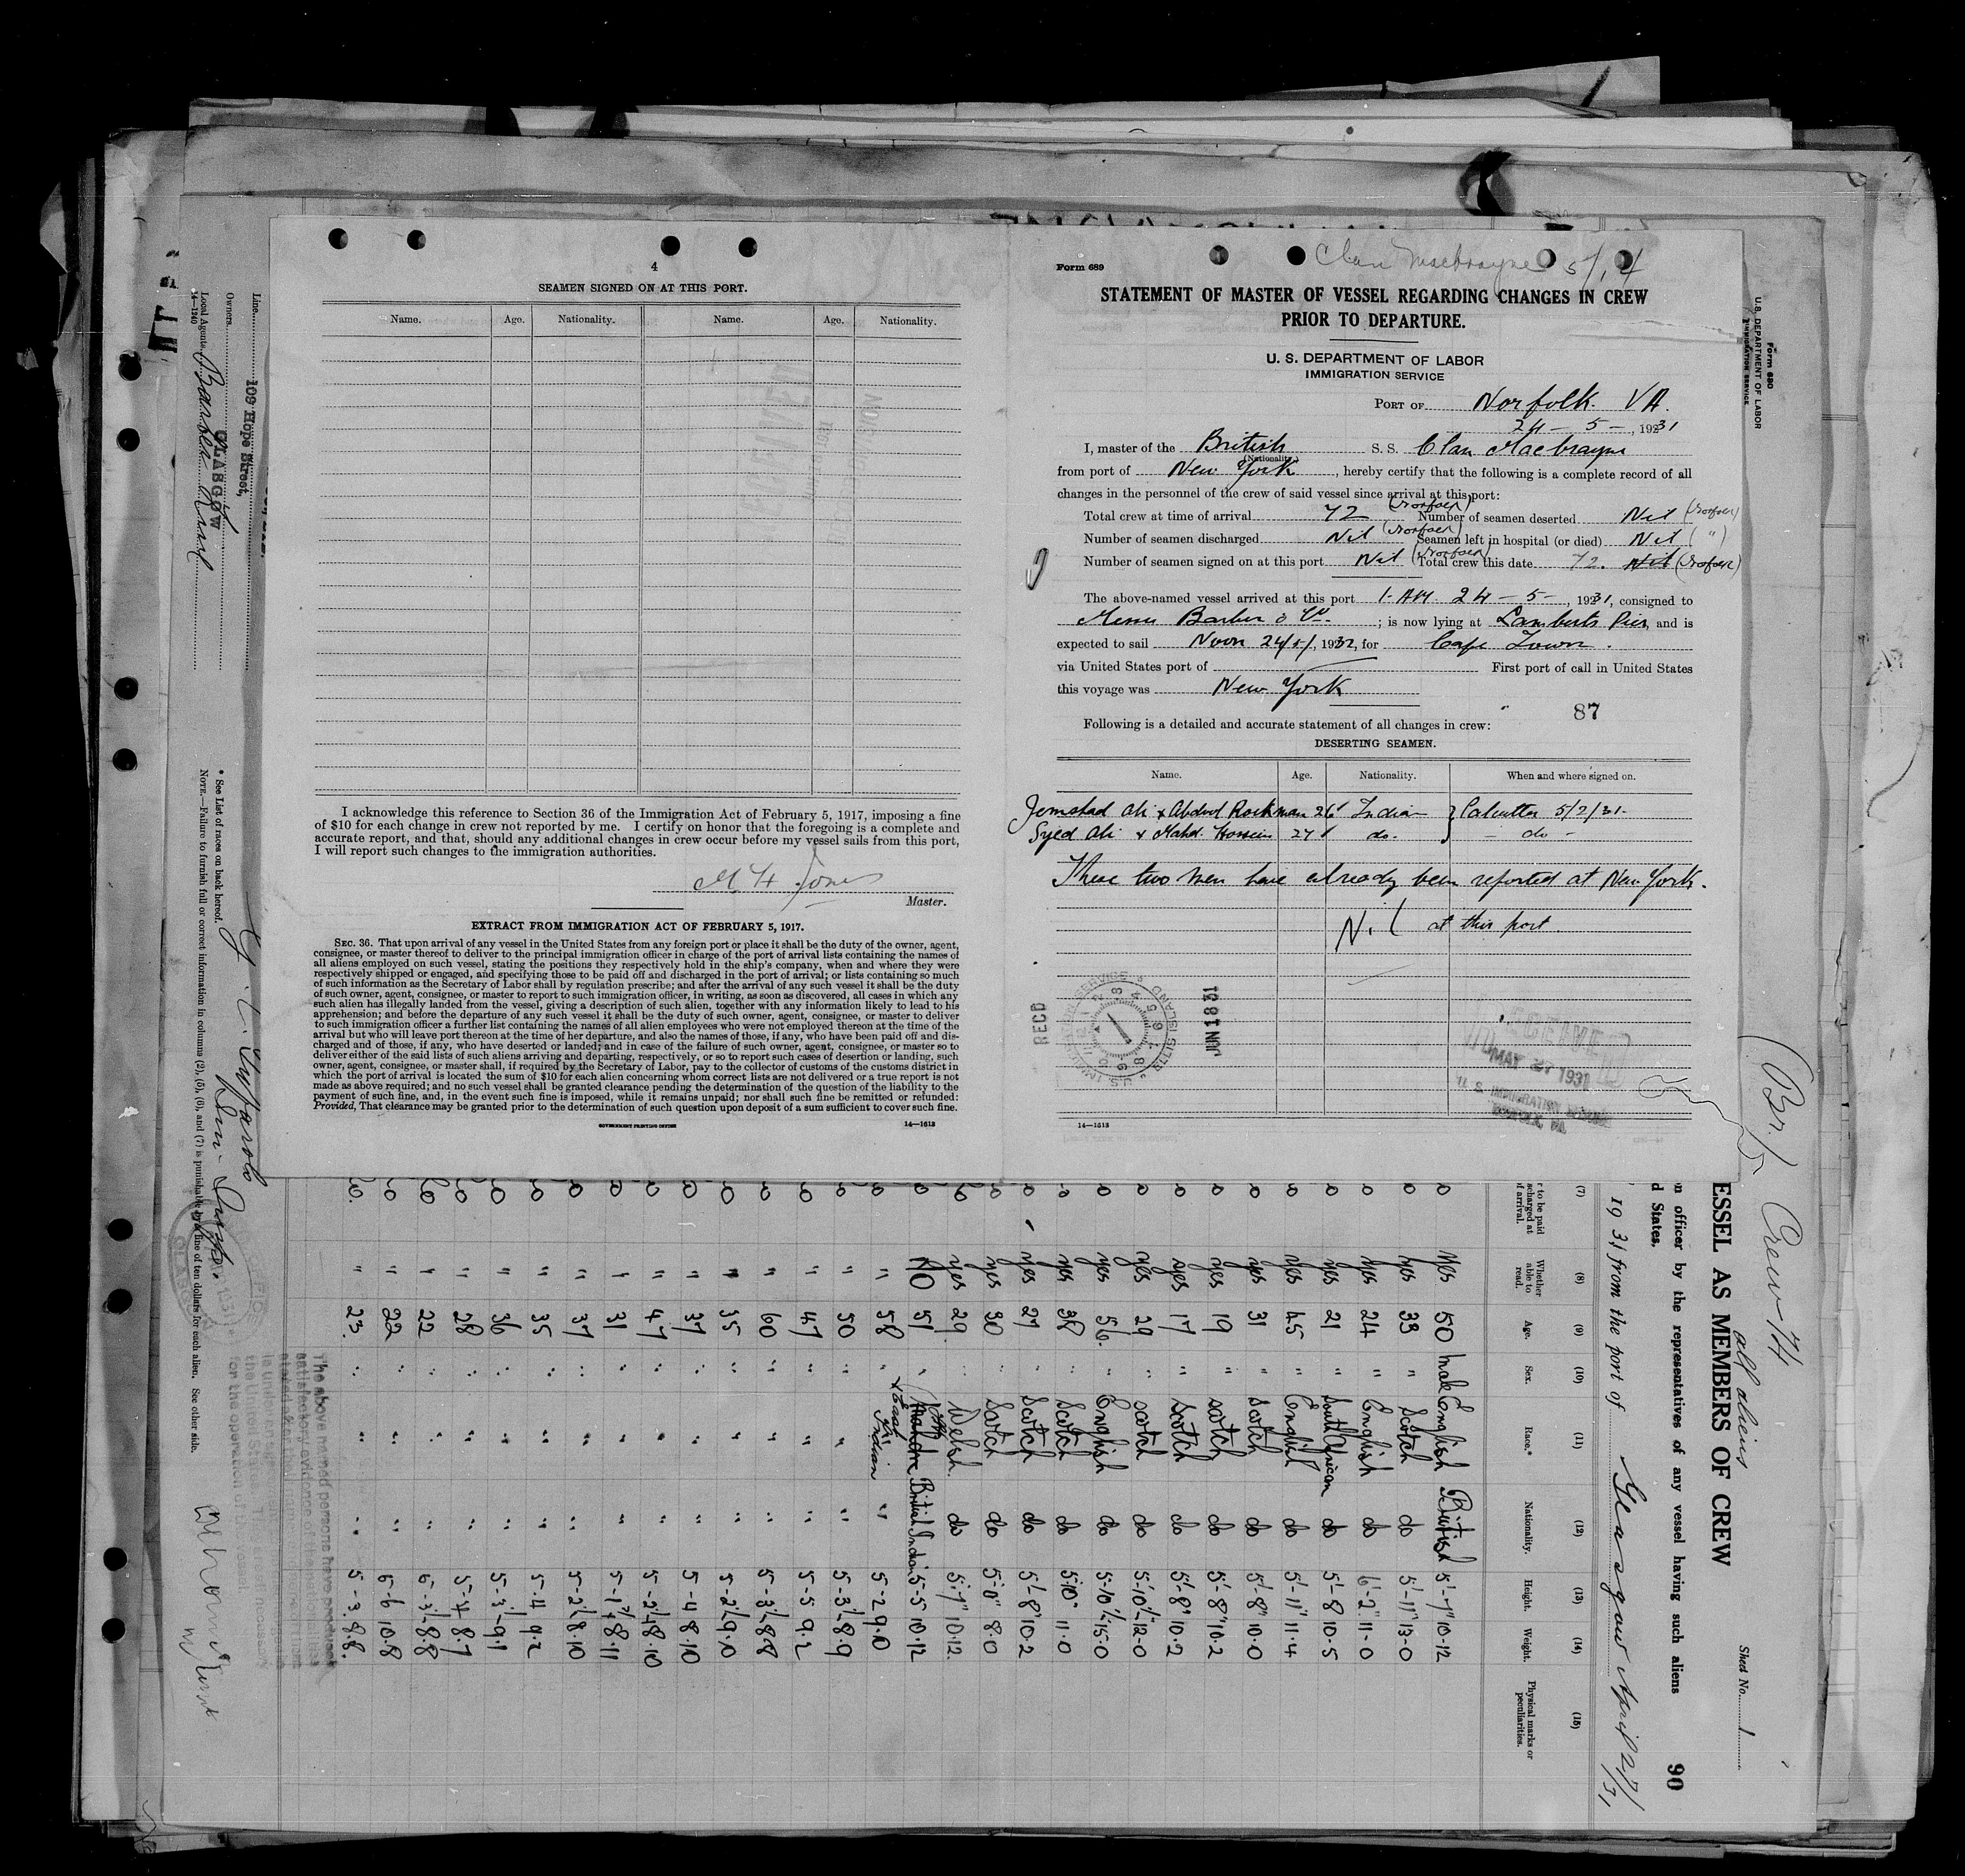 4
SEAMEN SIGNED ON AT THIS PORT.
Name. Age. Nationality. Name. Age. Nationality.
I acknowledge this reference to Section 36 of the Immigration Act of February 5, 1917, imposing a fine
of $10 for each change in crew not reported by me. I certify on honor that the foregoing is a complete and
accurate report, and that, should any additional changes in crew occur before my vessel sails from this port,
I will report such changes to the immigration authorities.
Jones
Master.
EXTRACT FROM IMMIGRATION ACT OF FEBRUARY 5, 1917.
SEC. 36. That upon arrival of any vessel in the United States from any foreign port or place it shall be the duty of the owner, agent,
consignee, or master thereof to deliver to the principal immigration officer in charge of the port of arrival lists containing the names of
all aliens employed on such vessel, stating the positions they respectively hold in the ship's company, when and where they were
respectively shipped or engaged, and specifying those to be paid off and discharged in the port of arrival; or lists containing so much
of such information as the Secretary of Labor shall by regulation prescribe; and after the arrival of any such vessel it shall be the duty
of such owner, agent, consignee, or master to report to such immigration officer, in writing, as soon as discovered, all cases in which any
such alien has illegally landed from the vessel, giving a description of such alien, together with any information likely to lead to his
apprehension; and before the departure of any such vessel it shall be the duty of such owner, agent, consignee, or master to deliver
to such immigration officer a further list containing the names of all alien employees who were not employed thereon at the time of the
arrival but who will leave port thereon at the time of her departure, and also the names of those, if any, who have been paid off and dis-
charged and of those, if any, who have deserted or landed; and in case of the failure of such owner, agent, consignee, or master so to
deliver either of the said lists of such aliens arriving and departing, respectively, or so to report such cases of desertion or landing, such
owner, agent, consignee, or master, shall, if required by the Secretary of Labor, pay to the collector of customs of the customs district in
which the port of arrival is located the sum of $10 for each alien concerning whom correct lists are not delivered or a true report is not
made as above required; and no such vessel shall be granted clearance pending the determination of the question of the liability to the
payment of such fine, and, in the event such fine is imposed, while it remains unpaid; nor shall such fine be remitted or refunded:
Provided, That clearance may be granted prior to the determination of such question upon deposit of a sum sufficient to cover such fine.
GOVERNMENT PRINTING OFFICE 14—1613
Form 689
Clan Macbrayne
STATEMENT OF MASTER OF VESSEL REGARDING CHANGES IN CREW
PRIOR TO DEPARTURE.
U. S. DEPARTMENT OF LABOR
IMMIGRATION SERVICE
PORT OF Norfolk VA.
24 - 5 -, 1931
I, master of the British S. S. Clan Macbrayne
(Nationality)
from port of New York, hereby certify that the following is a complete record of all
changes in the personnel of the crew of said vessel since arrival at this port:
Total crew at time of arrival 72 (Norfolk) Number of seamen deserted Nil (Norfolk)
Number of seamen discharged Nil (Norfolk) Seamen left in hospital (or died) Nil (")
Number of seamen signed on at this port Nil (Norfolk) Total crew this date 72. Nil (Norfolk)
The above-named vessel arrived at this port 1. AM 24 - 5 -, 1931, consigned to
Messrs Barber & Co.; is now lying at Lamberts Pier, and is
expected to sail Noon 24/5/, 1932, for Cape Town.
via United States port of First port of call in United States
this voyage was New York
87
Following is a detailed and accurate statement of all changes in crew:
DESERTING SEAMEN.
Name. Age. Nationality. When and where signed on.
Jemshad Ali x Abdul Rockman 26 Indian } Calcutta 5/2/31.
Syed Ali x Mahd. Hossein 27 do. - do -
These two men have already been reported at New York.
Nil at this port.
RECD
U.S. IMMIGRATION SERVICE ELLIS ISLAND
JUN 18 31
RECEIVED
MAY 27 1931
U. S. IMMIGRATION SERVICE
NORFOLK, VA.
14—1613
Form 680
U.S. DEPARTMENT OF LABOR
IMMIGRATION SERVICE
(Br.) Crew 74
all aliens
ESSEL AS MEMBERS OF CREW
Sheet No. 1
on officer by the representatives of any vessel having such aliens
d States.
90
1931 from the port of Glasgow April 27/31
(7) (8) (9) (10) (11) (12) (13) (14) (15)
r to be paid
scharged at
of arrival.
Whether
able to
read.
Age. Sex. Race.* Nationality. Height. Weight. Physical marks or
peculiarities.
Yes 50 male English British 5'-7" 10-12
yes 33 " Scotch do 5'-11" 13-0
yes 24 " English do 6'-2" 11-0
yes 21 " South African do 5'-8 10-5
yes 45 " English do 5'-11" 11-4
yes 31 " Scotch do 5'-8" 10-0
yes 19 " Scotch do 5'-8" 10-2
yes 17 " Scotch do 5'-8" 10-2
yes 29 " Scotch do 5'-10½" 12-0
yes 56. " English do 5-10½ 15-0
yes 38 " Scotch do 5'10" 11-0
yes 27 " Scotch do 5'-8" 10-2
yes 30 " Scotch do 5'-0" 8-0
yes 29 " Welsh do 5'-7" 10-12
NO 51 " British Indian 5-5 10-12
" 58 " East Indian " 5-2 9.10
" 50 " " " 5-3½ 8-9
" 47 " " " 5-5 9.2
" 60 " " " 5-3½ 8.8
" 35 " " " 5-2½ 9.0
" 37 " " " 5-4 8.10
" 47 " " " 5-2½ 8.10
" 31 " " " 8.11
" 37 " " " 5-2½ 8.10
" 35 " " " 5-4 9.2
" 36 " " " 5-3½ 9.1
" 28 " " " 5-4 8.7
" 22 " " " 5-3½ 8.8
" 22 " " " 5-6 10.8
" 23. " " " 5-3. 8.8.
The above named persons have produced
satisfactory evidence of the nationalities
Line
109 Hope Street,
Owners GLASGOW
Local Agents
14—1240
* See List of races on back hereof.
NOTE.—Failure to furnish full or correct information in columns (2), (5), (6), and (7) is punishable by a fine of ten dollars for each alien. See other side.